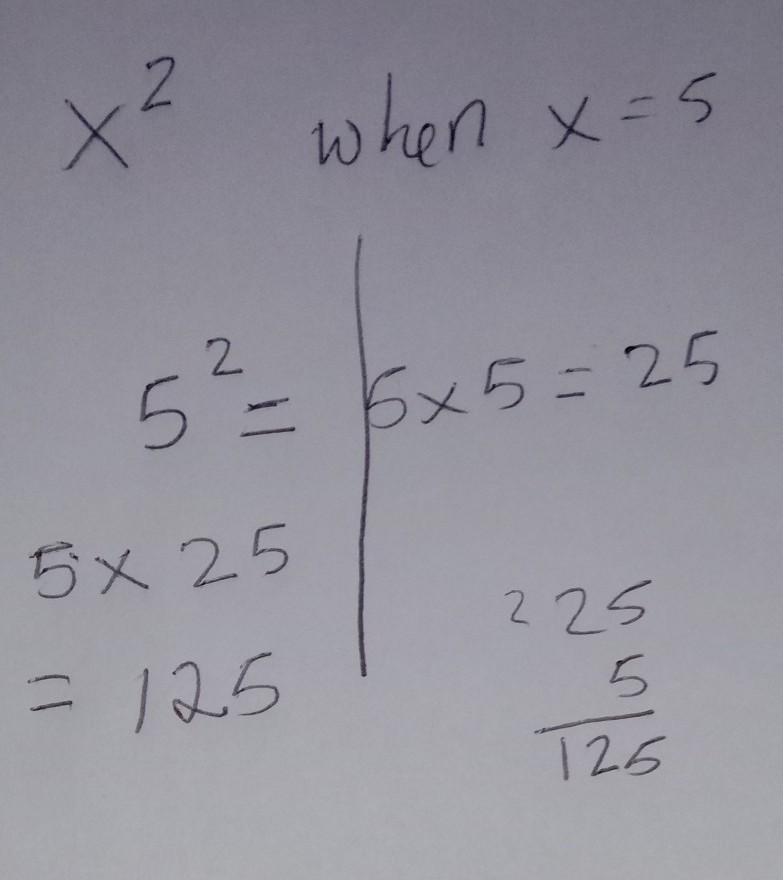 x² when x = 5
5² =
5 x 25
= 125
5 x 5 = 25
2 25
5
125